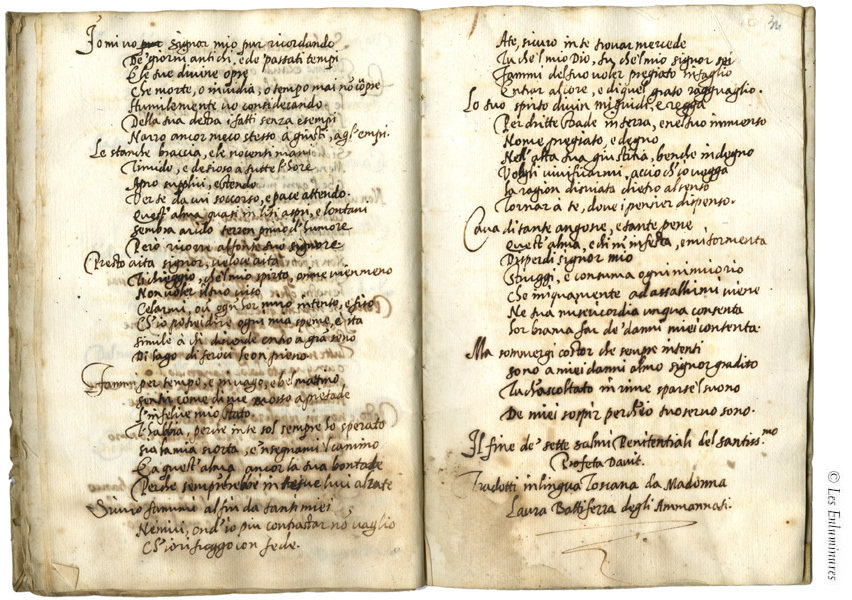 Io mi vo pur signor mio pur ricordando
De' giorni antichi, e de passati tempi
E le tue divine opre
Che morte, o invidia, o tempo mai nō copre
Humilmente vo considerando
Della tua destra i fatti senza esempi
Narro ancor meco stesso a giusti, a gl'empi.
Le stanche braccia, e le nocenti mani
Timido, e desioso a tutte l'hore
Apro supplici, e stendo
Ver te da cui soccorso, e pace attendo.
Quest'alma quasi in lidi aspri, e lontani
sembra arido terren privo d'humore
Però ricorre al fonte suo signore
Presto aita signor, veloce aita
Ti chieggio, che'l mio spirto, oime vien meno
Non voler il tuo viso
Celarmi, ov'ogn'hor miro intento, e fiso
Ch'io potrei dire ogni mia speme, e ita
simile à chi discende entro a grā seno
Di lago di feroci
Fammi per tempo, e in vago, e bel mattino
sentir come di me mosso a pietade
l'infelice mio stato
T'habbia, perche in te sol sempre ho sperato
sia la mia scorta, e insegnami'l camino
E a quest'alma ancor la tua bontade
Perche sempre in te luci alzate
Divino fammi al fin da tanti miei
Nemici, ond'io piu contrastar nō vaglio
Ch'io rifuggo con fede.
34
A te, sicuro in te trovar mercede
Tu che'l mio Dio, tu che'l mio signor sei
Fammi del tuo voler pregiato intaglio
Entro al core, e di quel grato ragguaglio.
Lo tuo spirto divin mi guidi, e regga
Per dritte strade in terra, e nel tuo immenso
Nome pregiato, e degno
Nell'alta tua giustitia, benche indegno
Vogli vivificarmi, accio ch'io vegga
La ragion disviata dietro al senso
Tornar à te, dove i pensier dispenso.
Cava di tante angosce, e tante pene
Quest'alma, e chi m'infesta, e mi tormenta
Disperdi signor mio
Struggi, e consuma ogni nimico rio
Che iniquamente ad assalirmi viene
Ne tua misericordia unqua consenta
Lor brama far de' danni miei contenta.
Ma sommergi costor che sempre intenti
sono a miei danni almo signor gradito
Tu ch'ascoltato in rime sparse'l suono
De miei sospir perch'io tuo servo sono.
Il fine de' sette salmi Penitentiali del santiss.mo
Profeta Davit.
Tradotti in lingua Toscana da Madonna
Laura Battiferra degli Ammannati.
© Les Enluminures